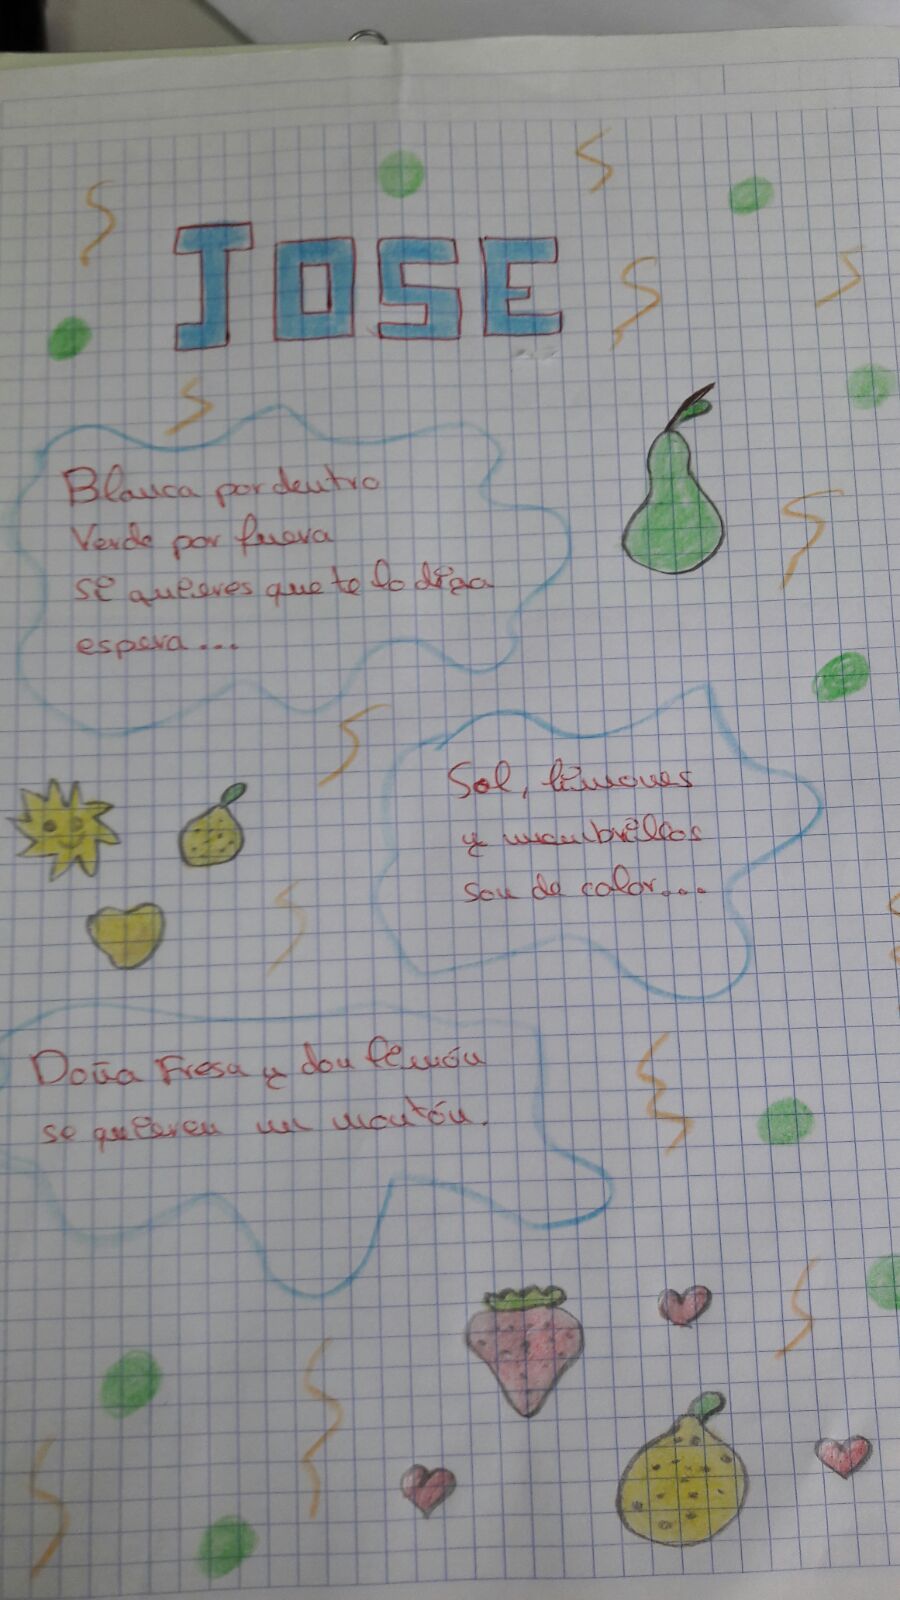 JOSE
Blanca por dentro
Verde por fuera
si quieres que te lo diga
espera...
Sol, limones
y membrillos
son de color...
Doña Fresa y don limón
se quieren un montón.